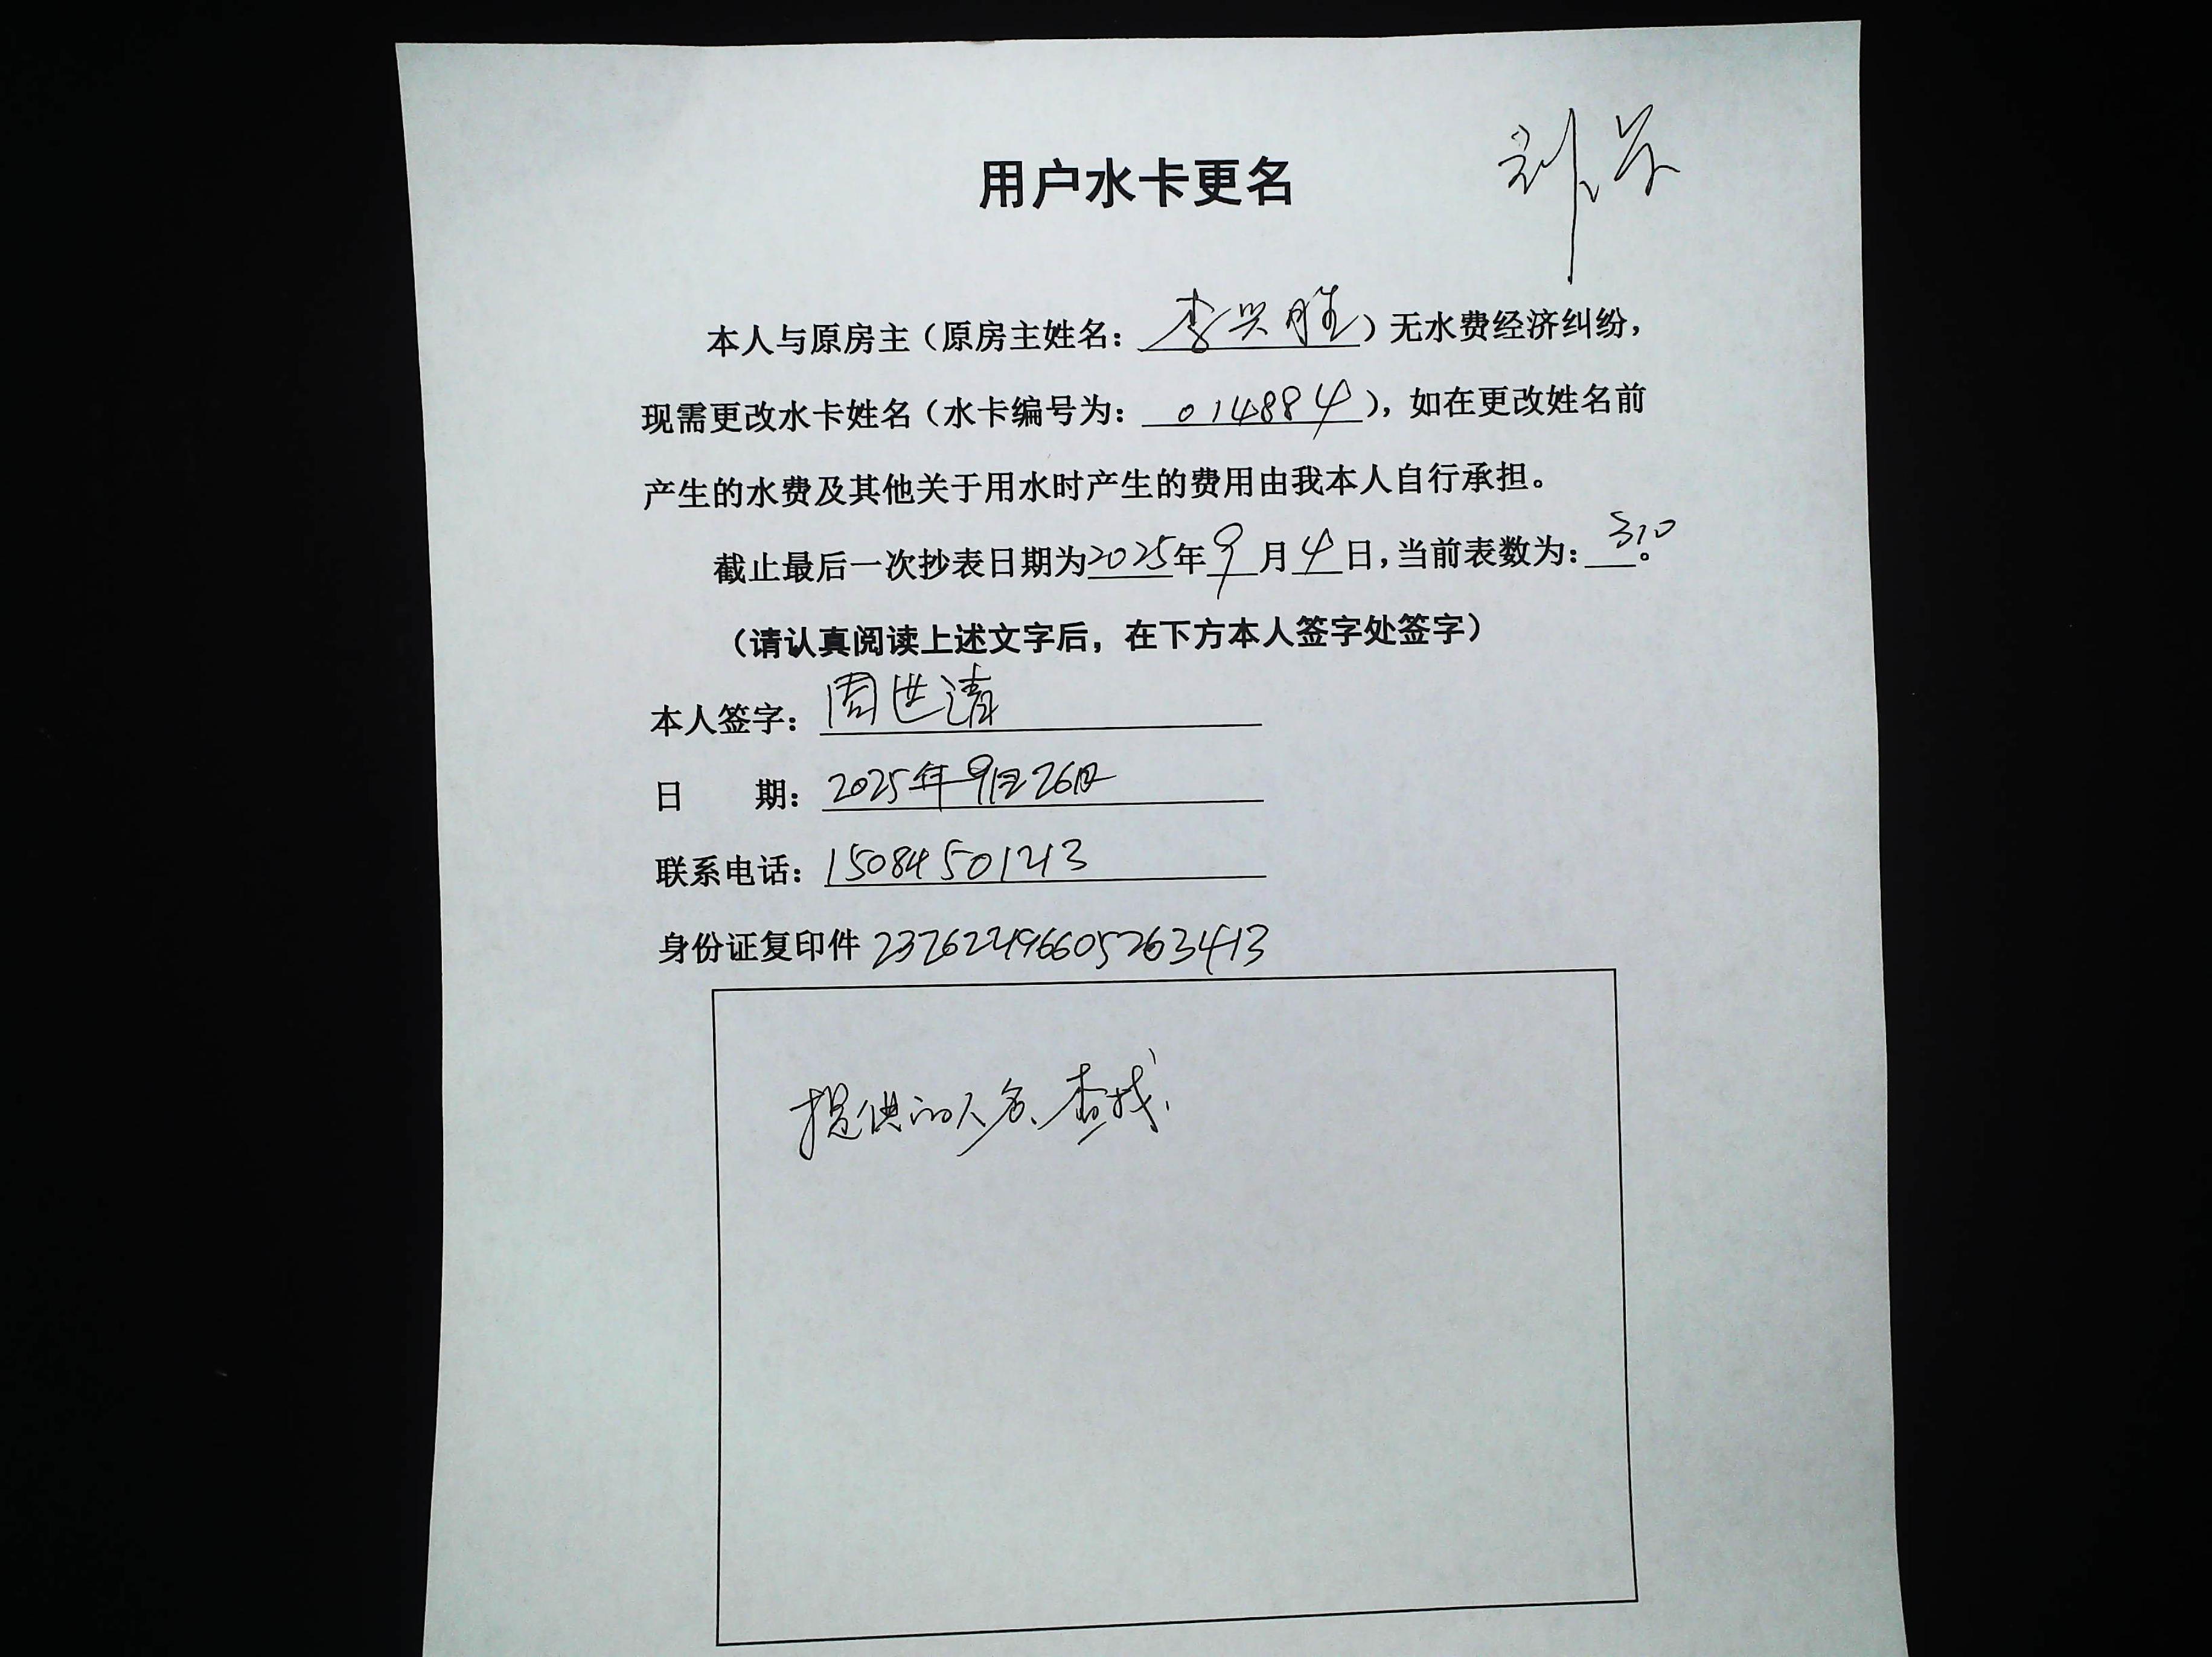 用户水卡更名
本人与原房主（原房主姓名：李兴胜）无水费经济纠纷，
现需更改水卡姓名（水卡编号为：014884），如在更改姓名前
产生的水费及其他关于用水时产生的费用由我本人自行承担。
截止最后一次抄表日期为2025年9月4日，当前表数为：310。
（请认真阅读上述文字后，在下方本人签字处签字）
本人签字：周世清
日 期：2025年9月26日
联系电话：15084501213
身份证复印件
提供的人名、查找、